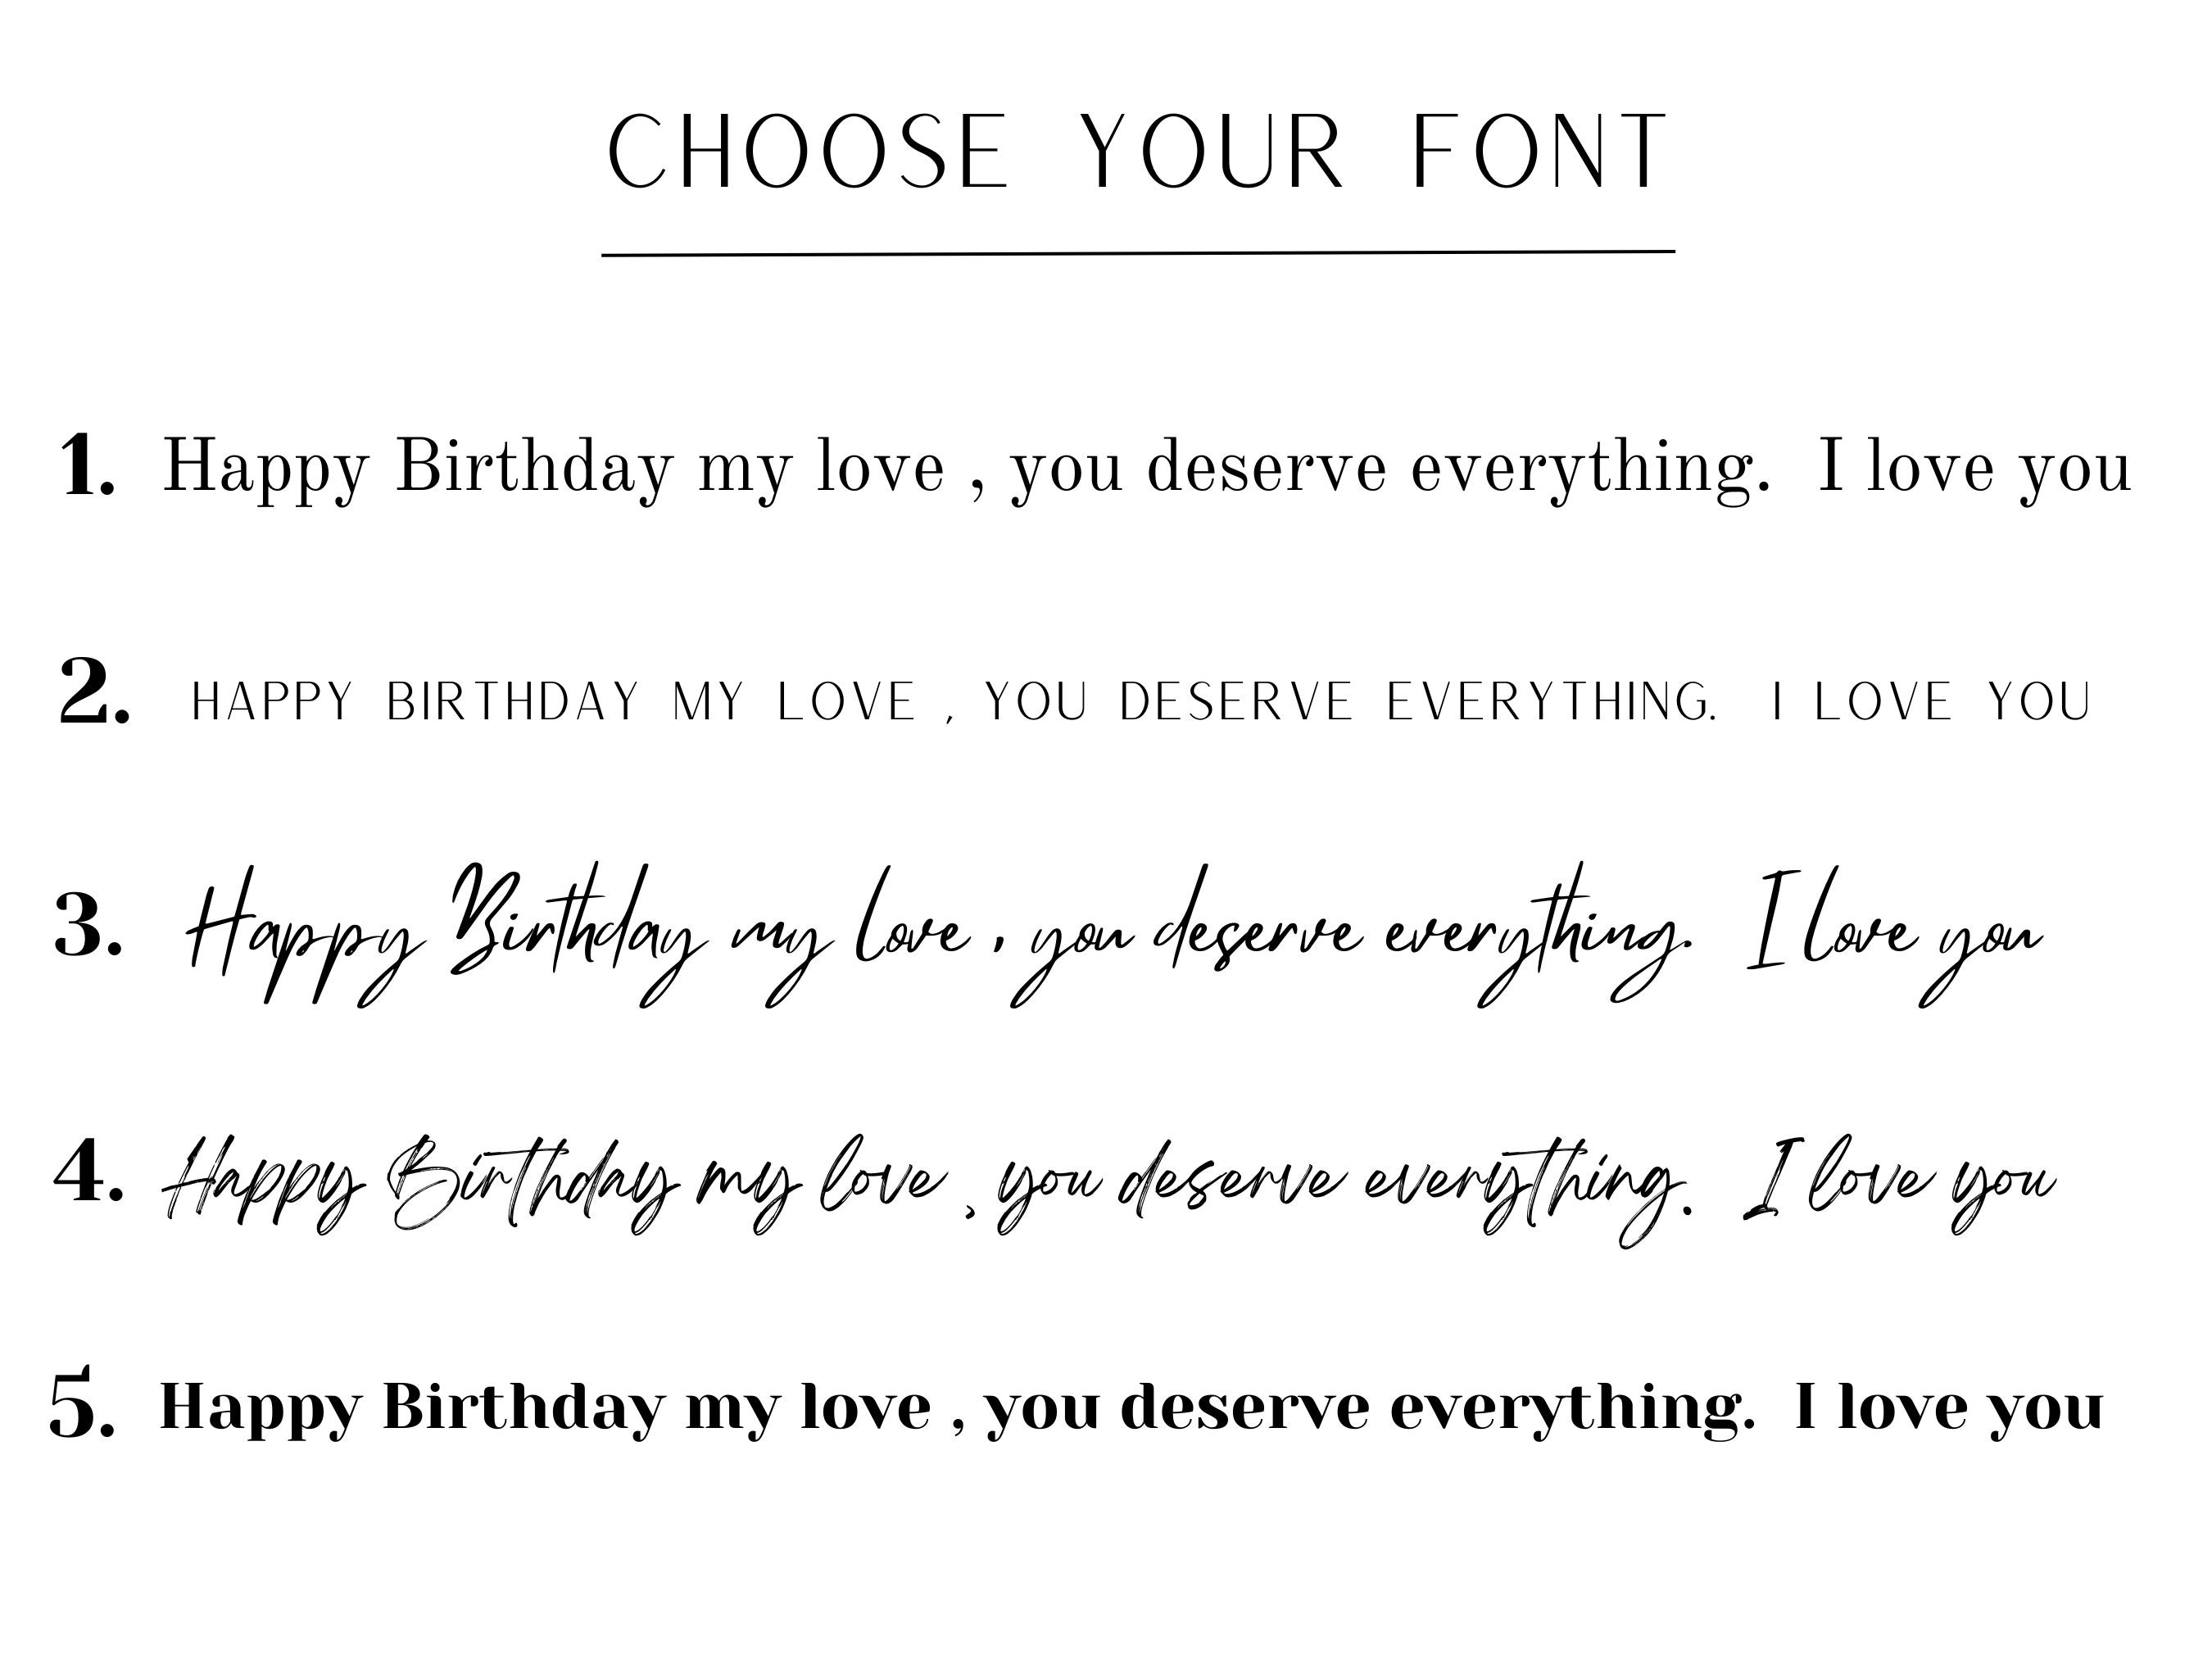 CHOOSE YOUR FONT
1. Happy Birthday my love , you deserve everything. I love you
2. HAPPY BIRTHDAY MY LOVE , YOU DESERVE EVERYTHING. I LOVE YOU
3. Happy Birthday my love , you deserve everything. I love you
4. Happy Birthday my love , you deserve everything. I love you
5. Happy Birthday my love , you deserve everything. I love you